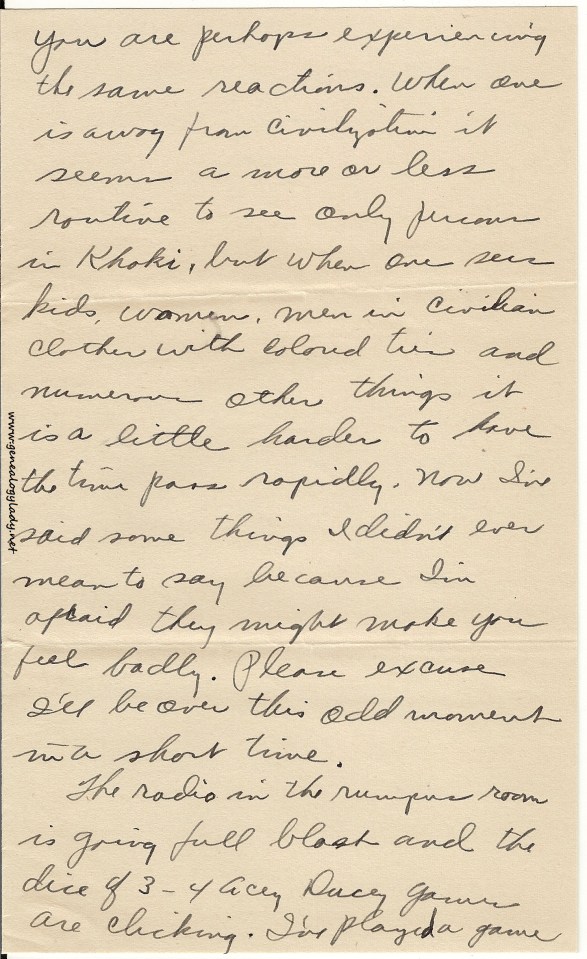 you are perhaps experiencing
the same reactions. When one
is away from civilization it
seems a more or less
routine to see only persons
in Khaki, but when one sees
kids, women, men in civilian
clothes with colored ties and
numerous other things it
is a little harder to have
the time pass rapidly. Now I've
said some things I didn't ever
mean to say because I'm
afraid they might make you
feel badly. Please excuse
I'll be over this odd moment
in a short time.
The radio in the rumpus room
is going full blast and the
dice of 3-4 Acey Ducey games
are clicking. I've played a game
www.genealogylady.net